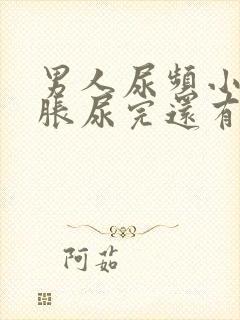 男人尿频小
脹尿完還有
阿茹